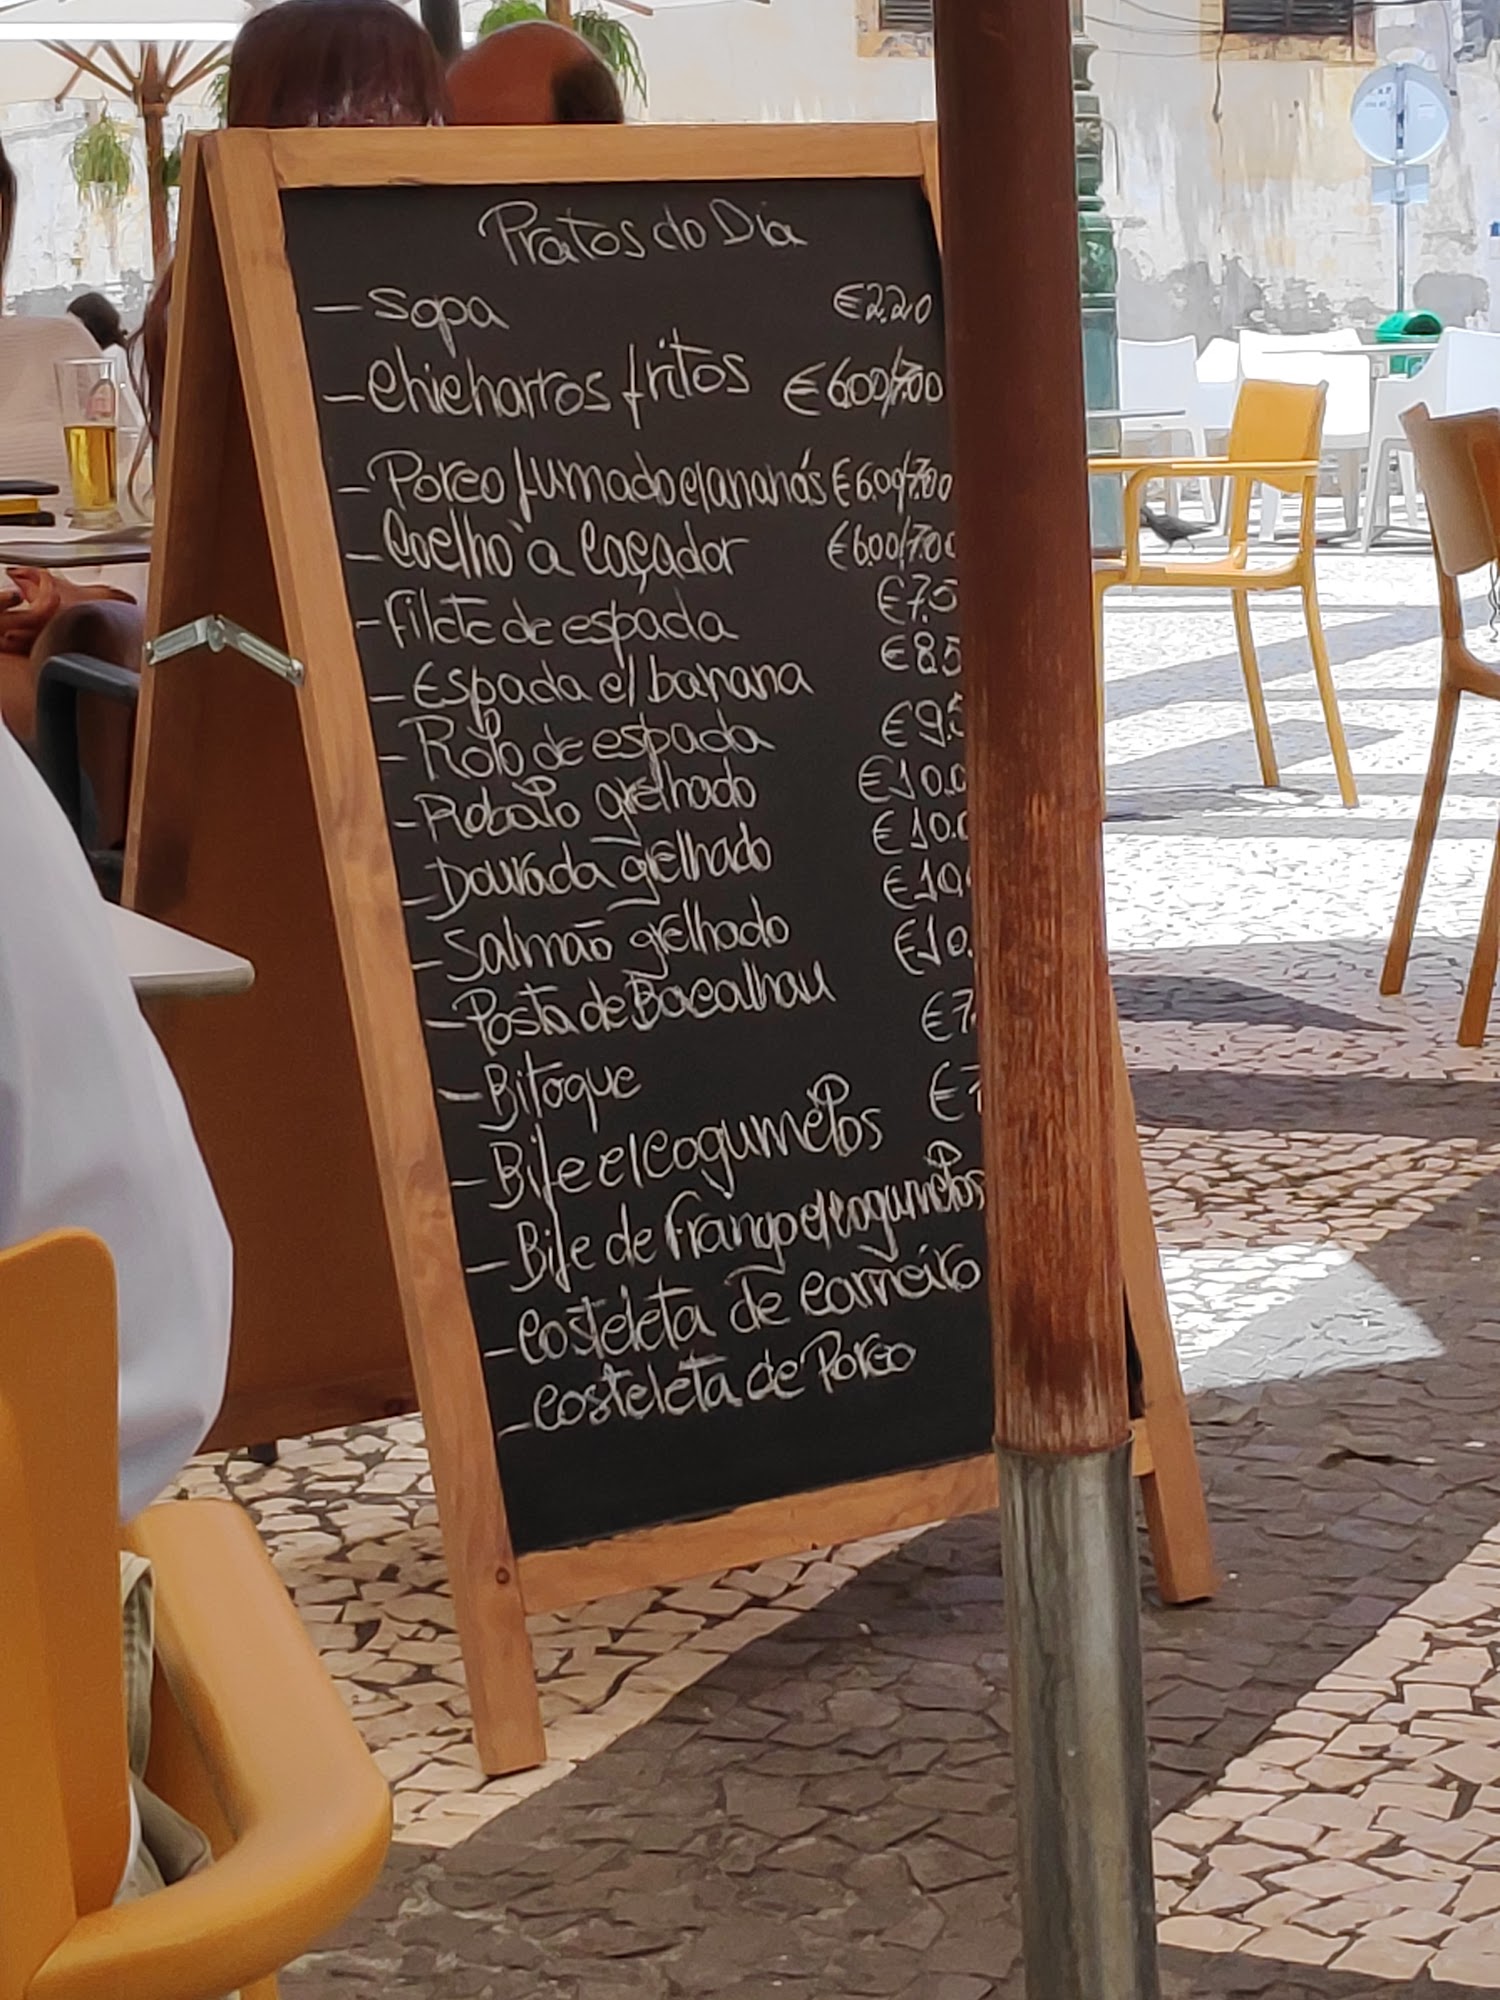 Pratos do Dia
- Sopa €2.20
- Chicharros fritos €6.00/7.00
- Porco fumado c/ananás €6.00/7.00
- Coelho à Caçador €6.00/7.00
- Filete de espada €7.5
- Espada c/ banana €8.5
- Rolo de espada €9.5
- Robalo grelhado €10.0
- Dourada grelhado €10.0
- Salmão grelhado €10.
- Posta de Bacalhau €10.
- Bitoque €7.
- Bife c/cogumelos €7
- Bife de Frango c/cogumelos
- Costeleta de Carneiro
- Costeleta de Porco